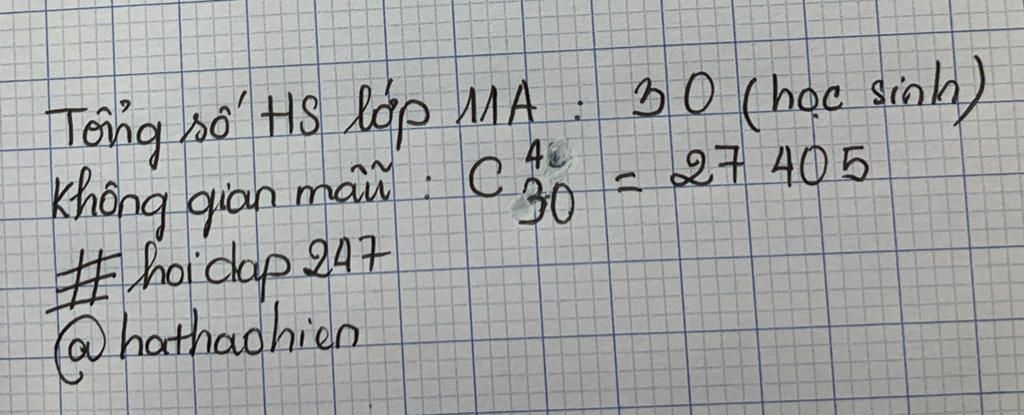 Tổng số HS lớp 11A : 30 (học sinh)
Không gian mẫu : C⁴₃₀ = 27 405
# hoidap 247
@hathaohien